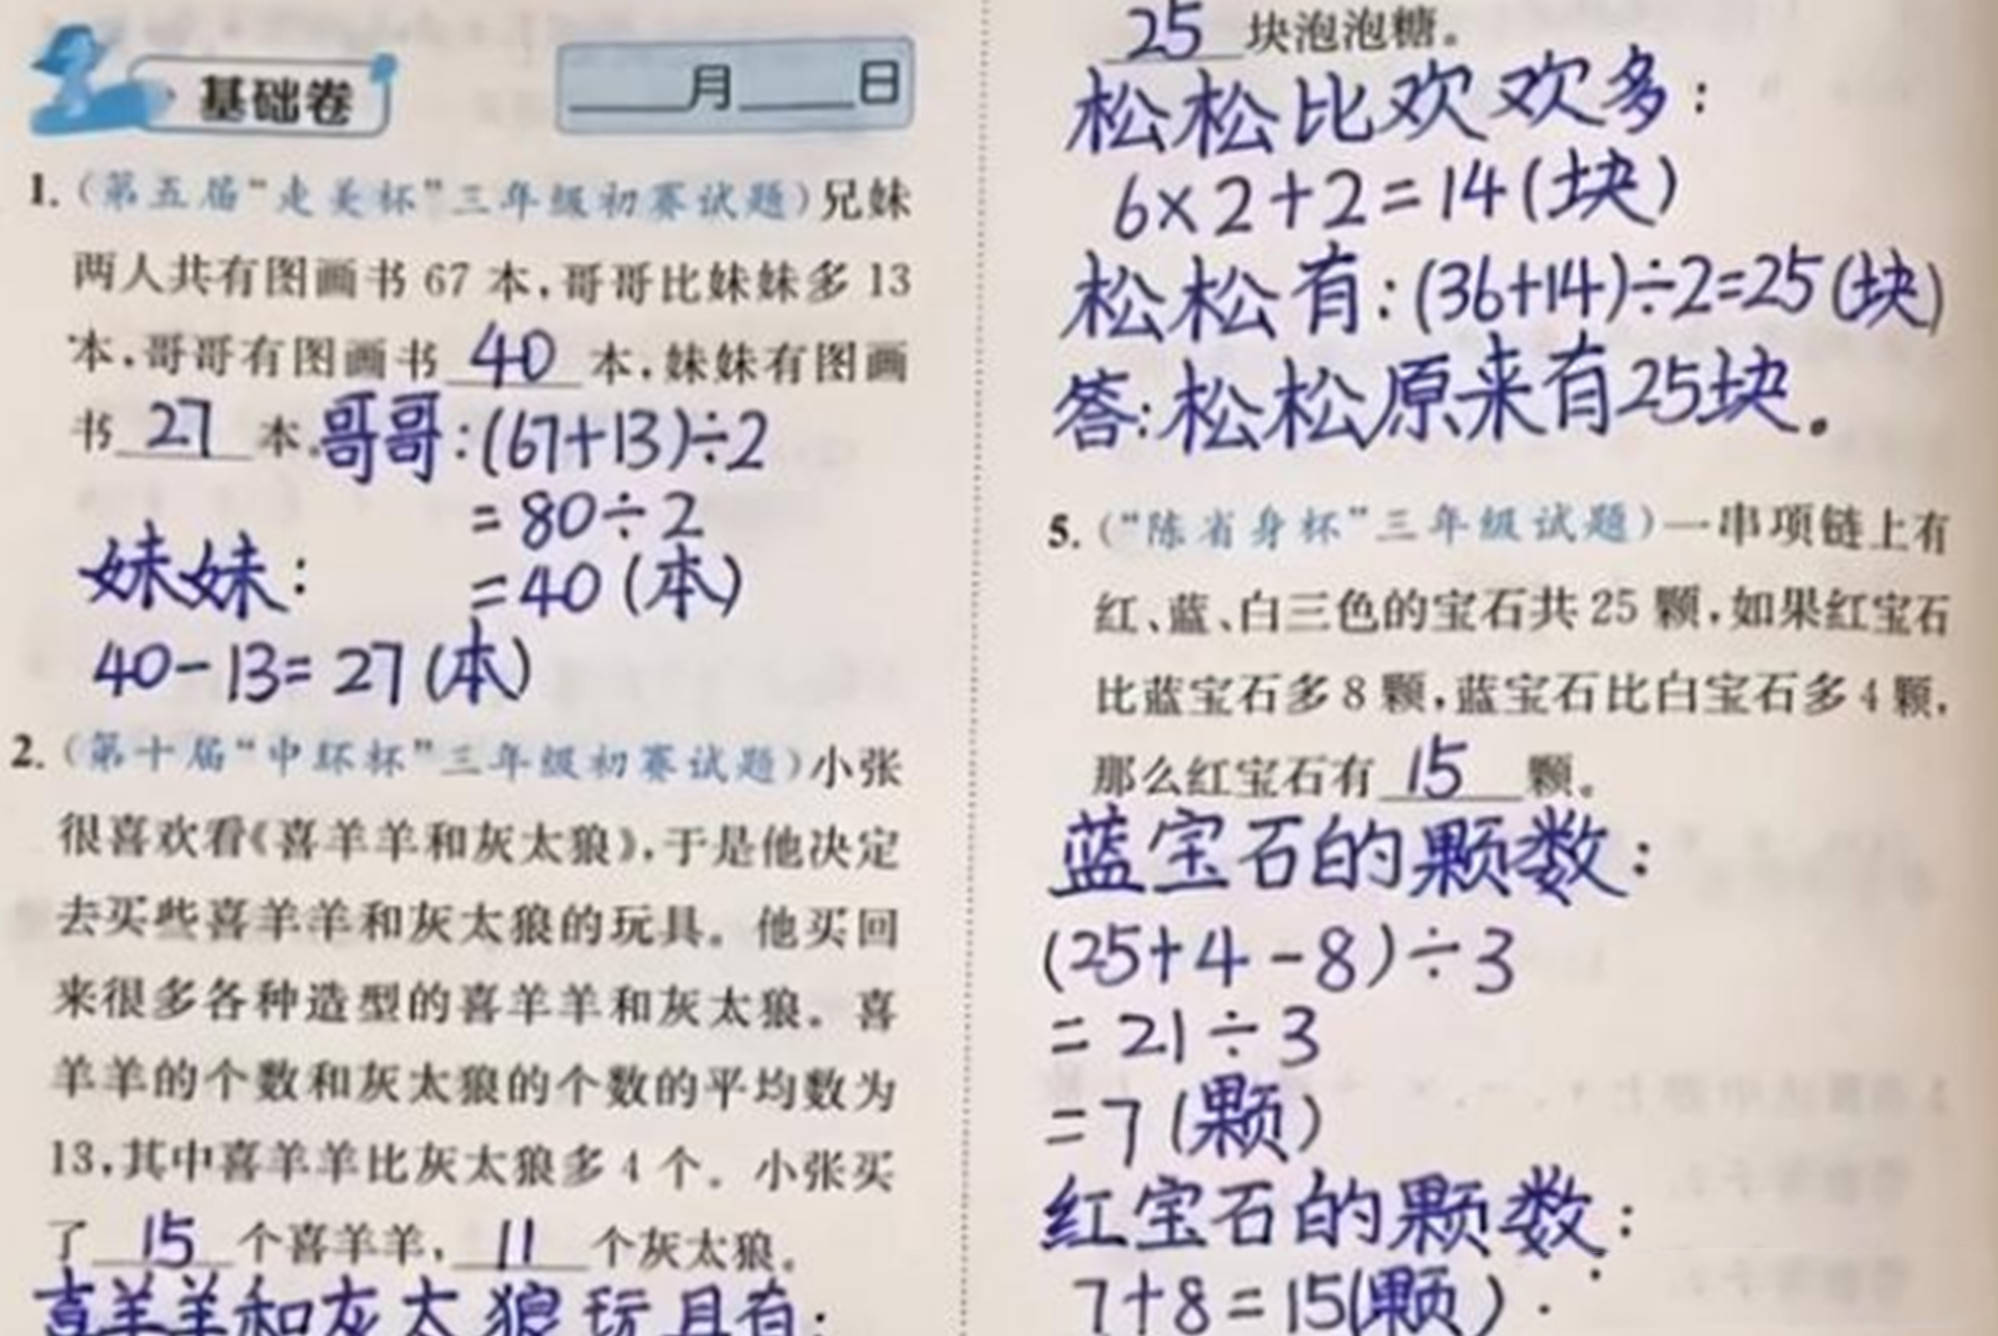 基础卷
____月____日
1.(第五届“走美杯”三年级初赛试题)兄妹
两人共有图画书67本,哥哥比妹妹多13
本,哥哥有图画书 40 本,妹妹有图画
书 27 本。哥哥:(67+13)÷2
=80÷2
妹妹: =40(本)
40-13=27(本)
2.(第十届“中环杯”三年级初赛试题)小张
很喜欢看《喜羊羊和灰太狼》,于是他决定
去买些喜羊羊和灰太狼的玩具。他买回
来很多各种造型的喜羊羊和灰太狼。喜
羊羊的个数和灰太狼的个数的平均数为
13,其中喜羊羊比灰太狼多4个。小张买
了 15 个喜羊羊, 11 个灰太狼。
喜羊羊和灰太狼玩具有:
25 块泡泡糖。
松松比欢欢多:
6×2+2=14(块)
松松有:(36+14)÷2=25(块)
答:松松原来有25块。
5.(“陈省身杯”三年级试题)一串项链上有
红、蓝、白三色的宝石共25颗,如果红宝石
比蓝宝石多8颗,蓝宝石比白宝石多4颗,
那么红宝石有 15 颗。
蓝宝石的颗数:
(25+4-8)÷3
=21÷3
=7(颗)
红宝石的颗数:
7+8=15(颗).